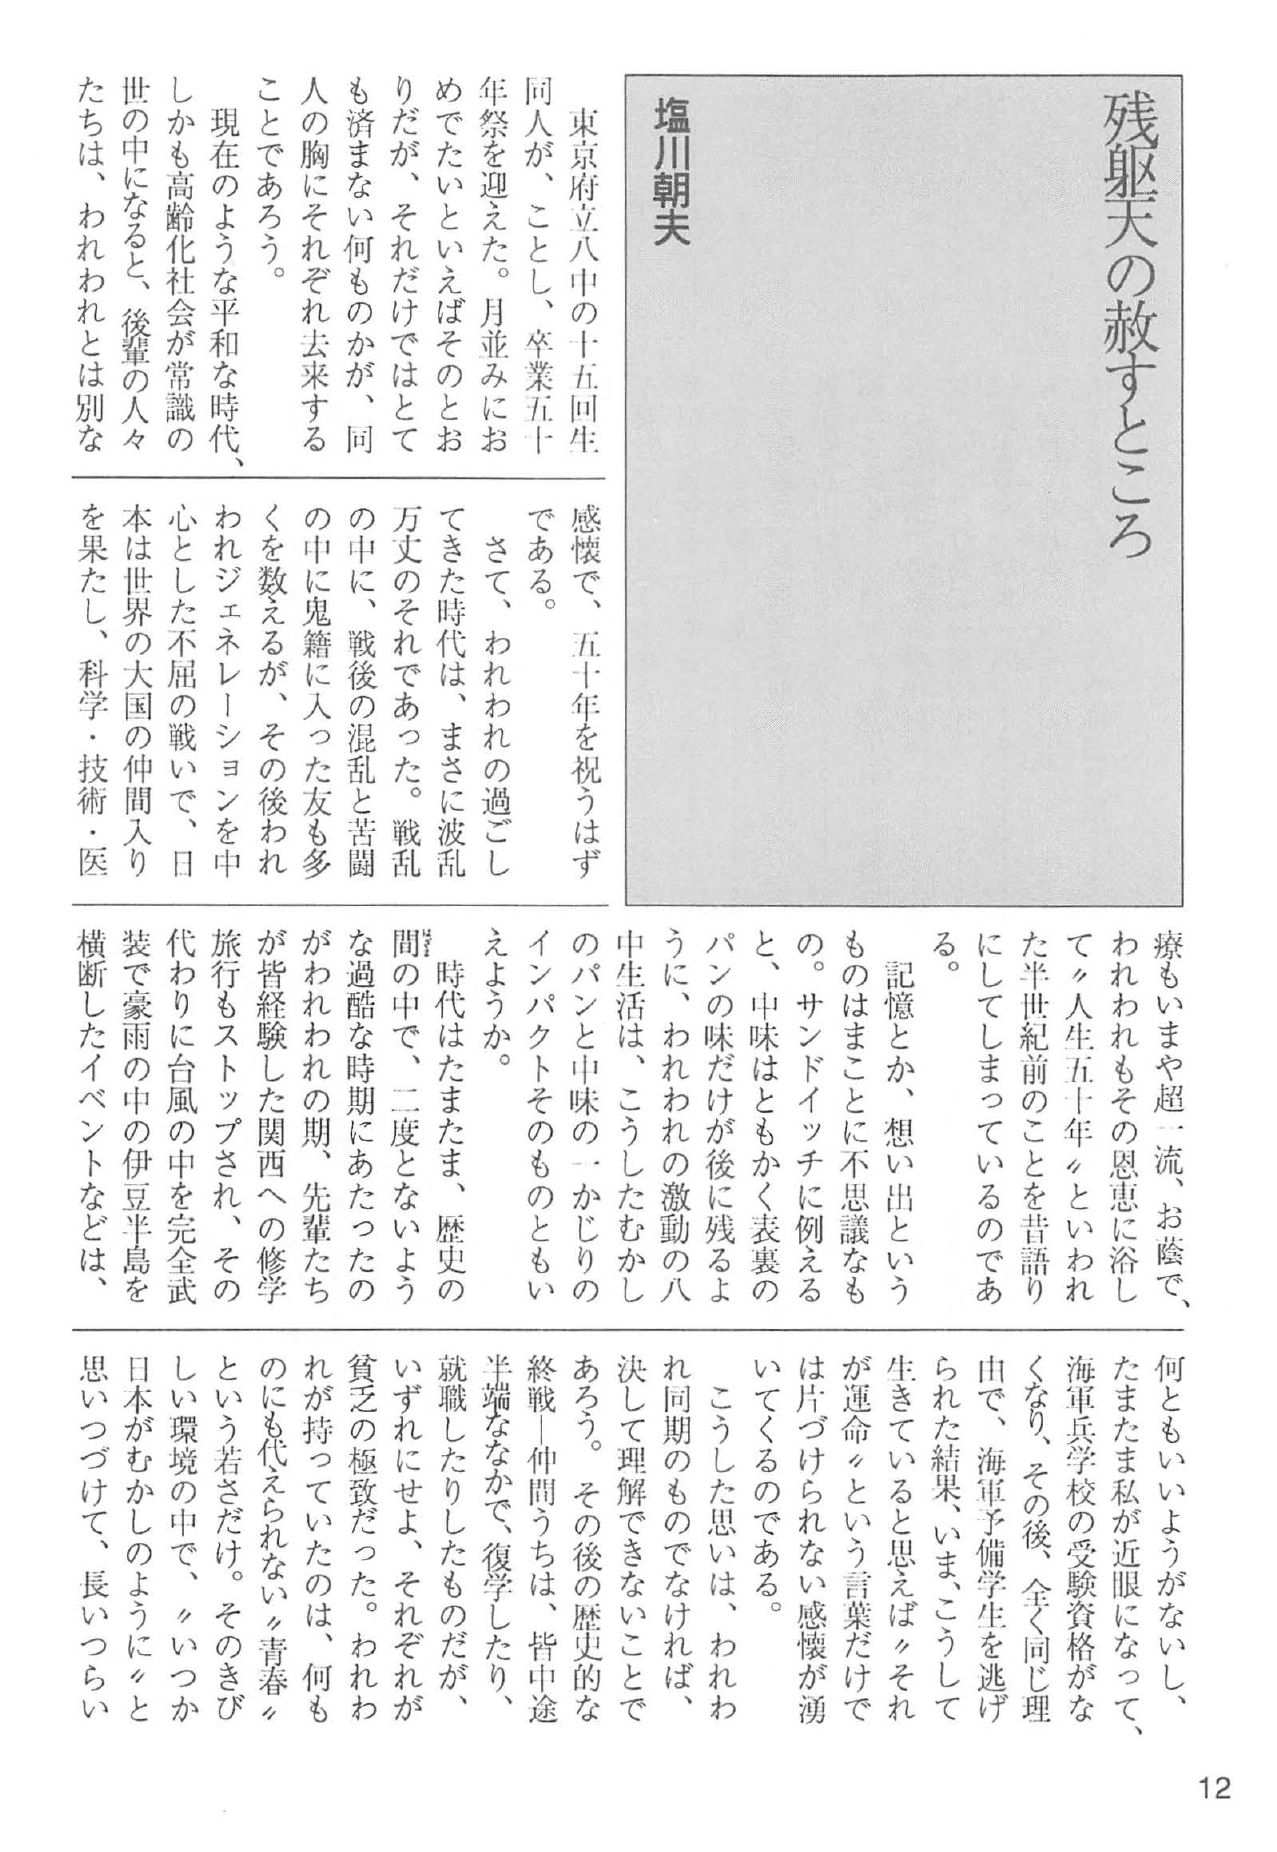 残躯天の赦すところ
塩川朝夫
東京府立八中の十五回生
同人が、ことし、卒業五十
年祭を迎えた。月並みにお
めでたいといえばそのとお
りだが、それだけではとて
も済まない何ものかが、同
人の胸にそれぞれ去来する
ことであろう。
現在のような平和な時代、
しかも高齢化社会が常識の
世の中になると、後輩の人々
たちは、われわれとは別な
感懐で、五十年を祝うはず
である。
さて、われわれの過ごし
てきた時代は、まさに波乱
万丈のそれであった。戦乱
の中に、戦後の混乱と苦闘
の中に鬼籍に入った友も多
くを数えるが、その後われ
われジェネレーションを中
心とした不屈の戦いで、日
本は世界の大国の仲間入り
を果たし、科学・技術・医
療もいまや超一流、お蔭で、
われわれもその恩恵に浴し
て〃人生五十年〃といわれ
た半世紀前のことを昔語り
にしてしまっているのであ
る。
記憶とか、想い出という
ものはまことに不思議なも
の。サンドイッチに例える
と、中味はともかく表裏の
パンの味だけが後に残るよ
うに、われわれの激動の八
中生活は、こうしたむかし
のパンと中味の一かじりの
インパクトそのものともい
えようか。
時代はたまたま、歴史の
間の中で、二度とないよう
な過酷な時期にあたったの
がわれわれの期、先輩たち
が皆経験した関西への修学
旅行もストップされ、その
代わりに台風の中を完全武
装で豪雨の中の伊豆半島を
横断したイベントなどは、
何ともいいようがないし、
たまたま私が近眼になって、
海軍兵学校の受験資格がな
くなり、その後、全く同じ理
由で、海軍予備学生を逃げ
られた結果、いま、こうして
生きていると思えば〃それ
が運命〃という言葉だけで
は片づけられない感懐が湧
いてくるのである。
こうした思いは、われわ
れ同期のものでなければ、
決して理解できないことで
あろう。その後の歴史的な
終戦―仲間うちは、皆中途
半端ななかで、復学したり、
就職したりしたものだが、
いずれにせよ、それぞれが
貧乏の極致だった。われわ
れが持っていたのは、何も
のにも代えられない〃青春〃
という若さだけ。そのきび
しい環境の中で、〃いつか
日本がむかしのように〃と
思いつづけて、長いつらい
12